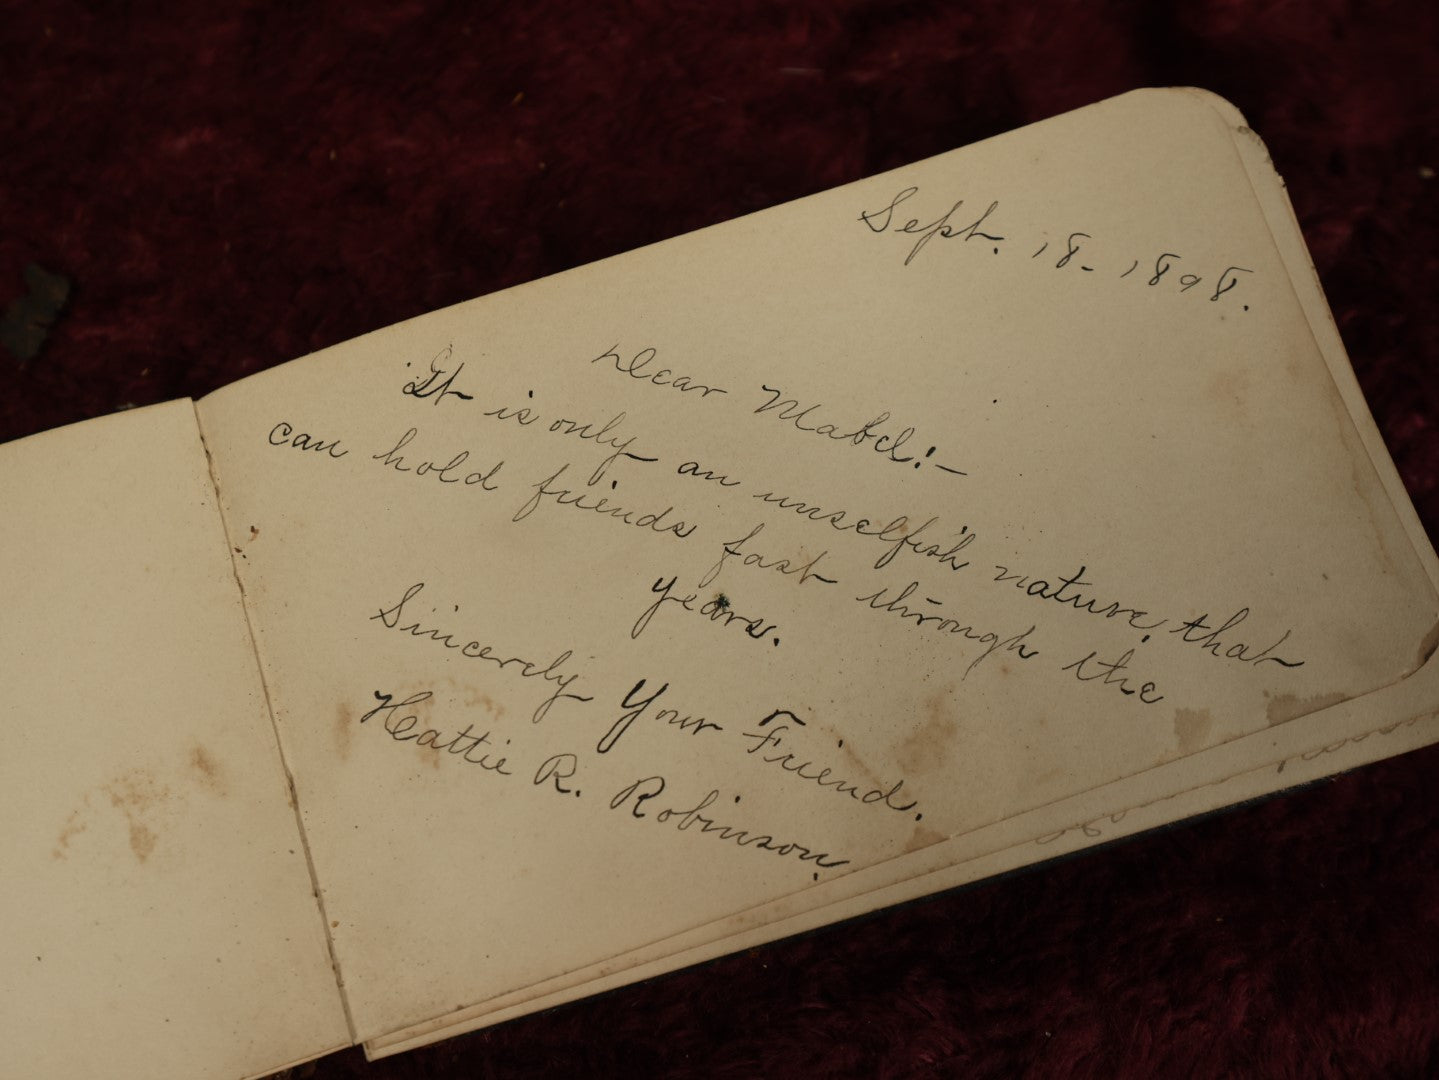 Sept. 18-1898.
Dear Mabel:-
It is only an unselfish nature, that
can hold friends fast through the
years.
Sincerely Your Friend.
Hattie R. Robinson.